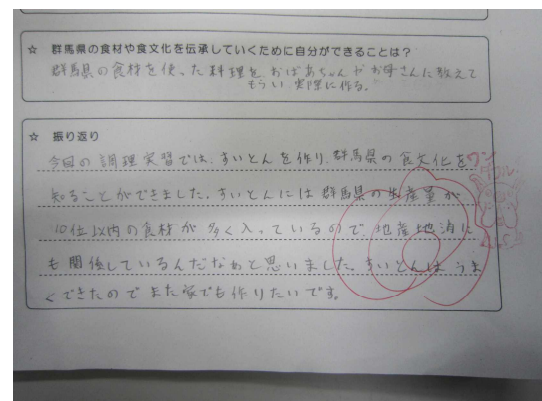 ☆ 群馬県の食材や食文化を伝承していくために自分ができることは？
群馬県の食材を使った料理をおばあちゃんやお母さんに教えて
もらい、実際に作る。
☆ 振り返り
今回の調理実習では、すいとんを作り、群馬県の食文化を
知ることができました。すいとんには群馬県の生産量が
10位以内の食材が多く入っているので地産地消に
も関係しているんだなぁと思いました。すいとんはうま
くできたのでまた家でも作りたいです。
ワン